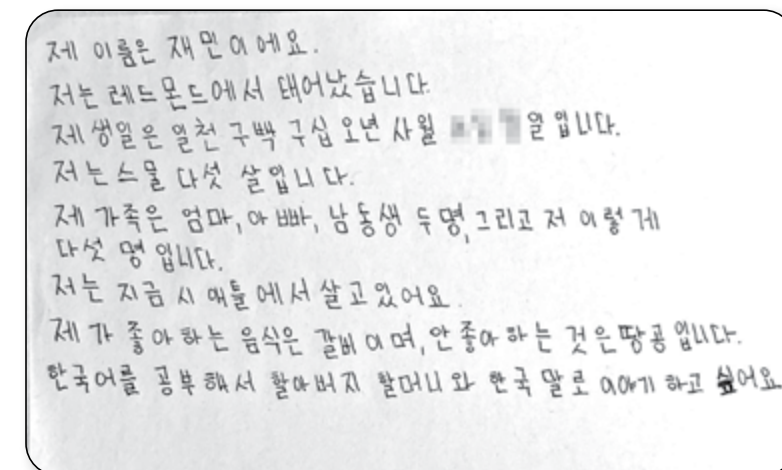 제 이름은 재민이에요.
저는 레드몬드에서 태어났습니다.
제 생일은 일천 구백 구십 오년 사월 일 입니다.
저는 스물 다섯 살입니다.
제 가족은 엄마, 아빠, 남동생 두명, 그리고 저 이렇게
다섯 명 입니다.
저는 지금 시애틀에서 살고있어요.
제가 좋아하는 음식은 갈비이며, 안좋아하는 것은땅콩입니다.
한국어를 공부해서 할아버지 할머니와 한국말로 이야기 하고 싶어요